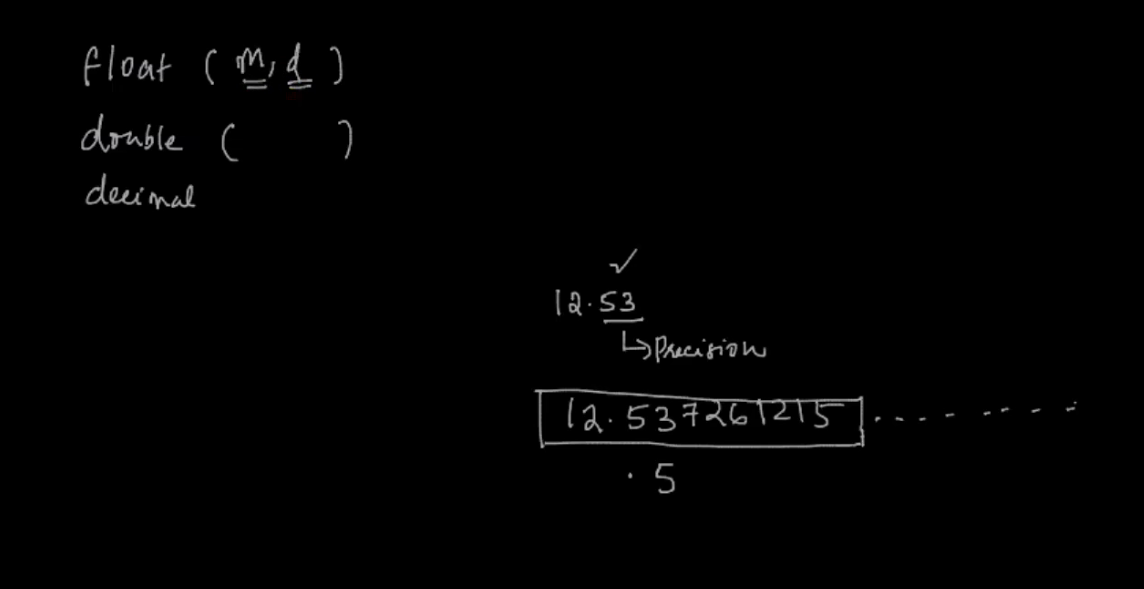 float ( m, d )
double ( )
decimal
✓
12.53
↳ Precision
12.537261215 . - - - - - - - -
.5